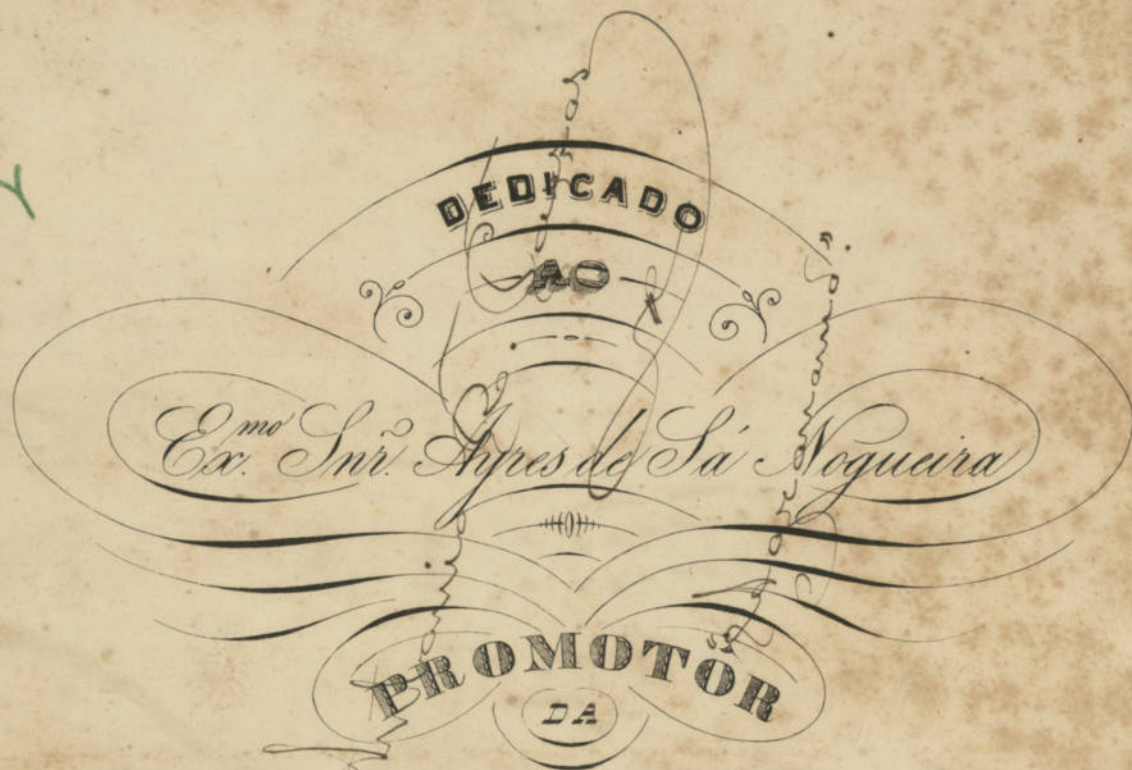 DEDICADO
AO
Ex.mo Snr. Ayres de Sá Nogueira
PROMOTOR
DA